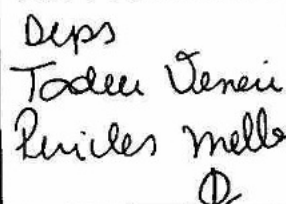 Deps
Tadeu Veneri
Pericles Mello